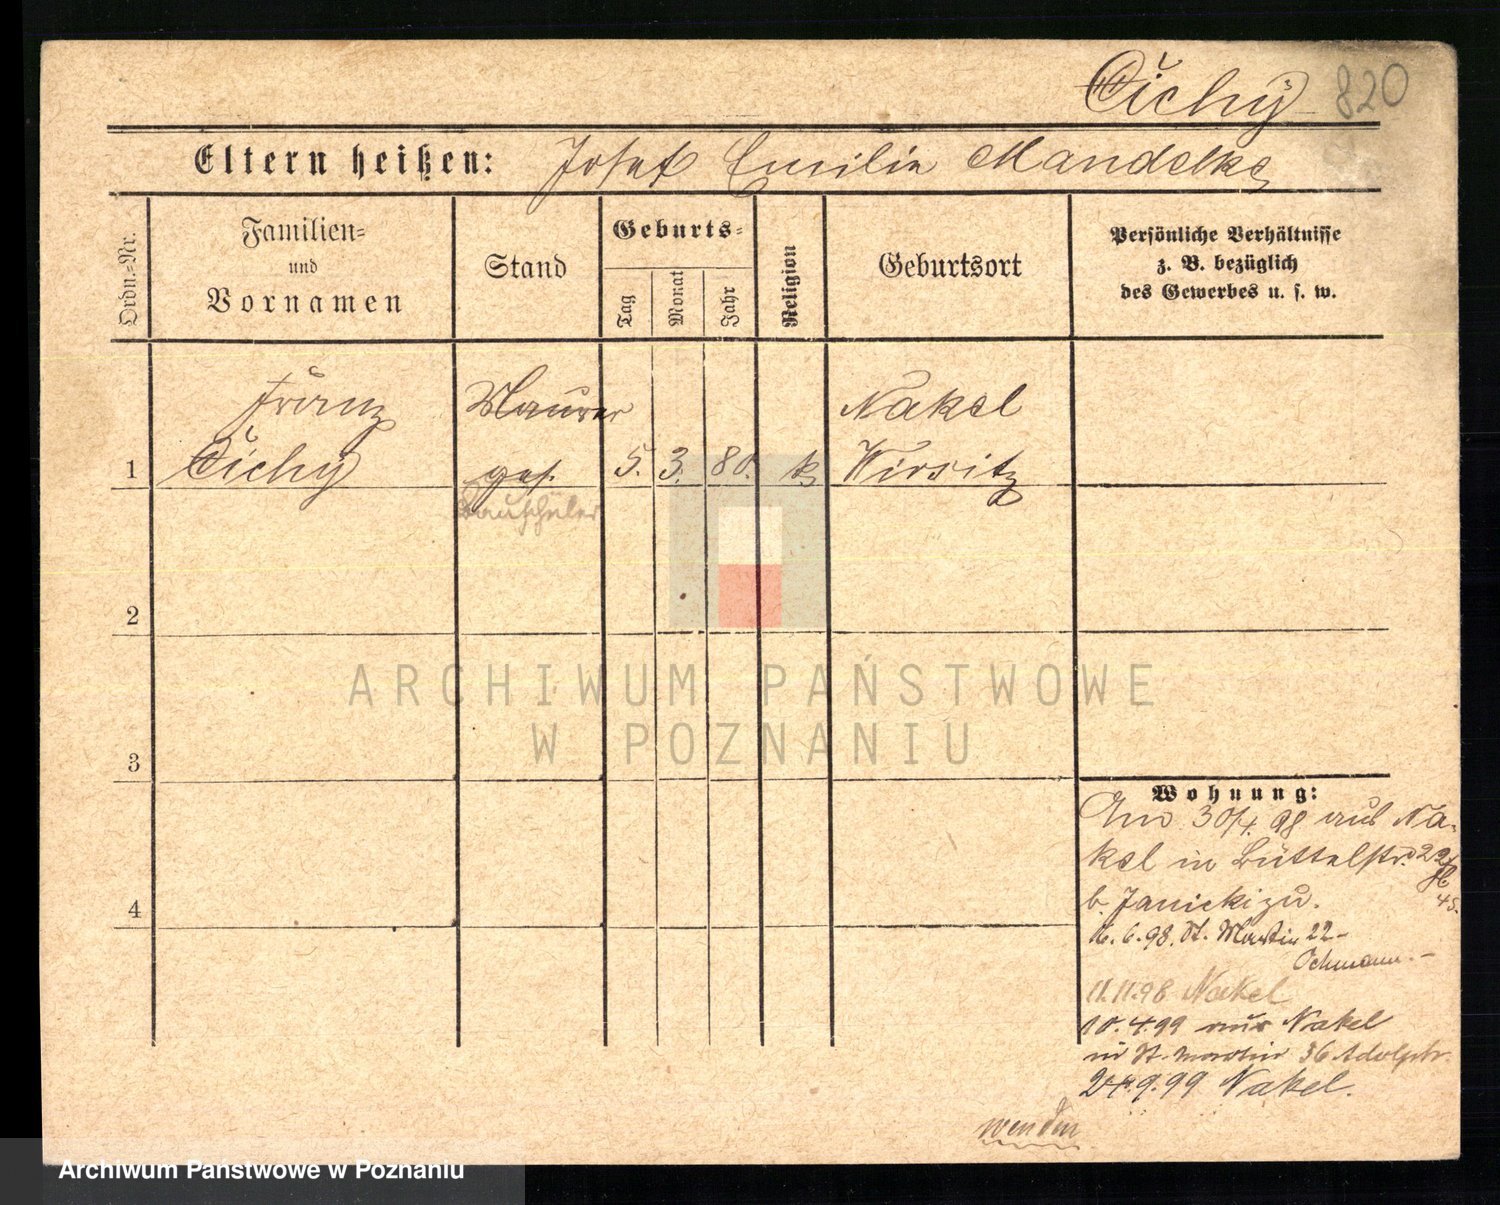 Cichy 820
Eltern heißen: Josef Emilie Mandelke
Ordn.=Nr.
Familien=
und
Vornamen
Stand
Geburts=
Tag
Monat
Jahr
Religion
Geburtsort
Persönliche Verhältnisse
z. B. bezüglich
des Gewerbes u. s. w.
Franz Maurer Nakel
1 Cichy ges. 5. 3. 80. k Wirsitz
Bauschüler
2
ARCHIWUM PAŃSTWOWE
W POZNANIU
3
Wohnung:
30/4. 98 aus Na-
kel in Büttelstr. 22
b. Janicki zu.
45.
4
16. 6. 98. St. Martin 22-
Ochmann.-
11.11.98 Nakel
10.4.99 aus Nakel
in St. Martin 36 Adolphr.
24.9.99 Nakel.
wenden
Archiwum Państwowe w Poznaniu